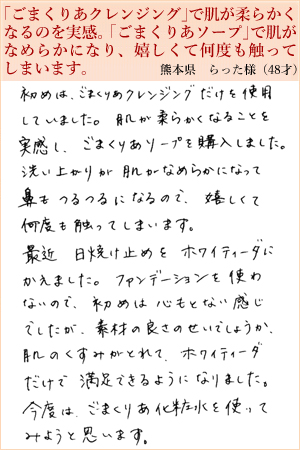 「ごまくりあクレンジング」で肌が柔らかく
なるのを実感。「ごまくりあソープ」で肌が
なめらかになり、嬉しくて何度も触って
しまいます。
熊本県 らった様（48才）
初めは、ごまくりあクレンジングだけを使用
していました。肌が柔らかくなることを
実感し、ごまくりあソープを購入しました。
洗い上がりが肌がなめらかになって
鼻もつるつるになるので、嬉しくて
何度も触ってしまいます。
最近 日焼け止めを ホワイティーダに
かえました。ファンデーションを使わ
ないので、初めは心もとない感じ
でしたが、素材の良さのせいでしょうか、
肌のくすみがとれて、ホワイティーダ
だけで満足できるようになりました。
今度は、ごまくりあ化粧水を使って
みようと思います。